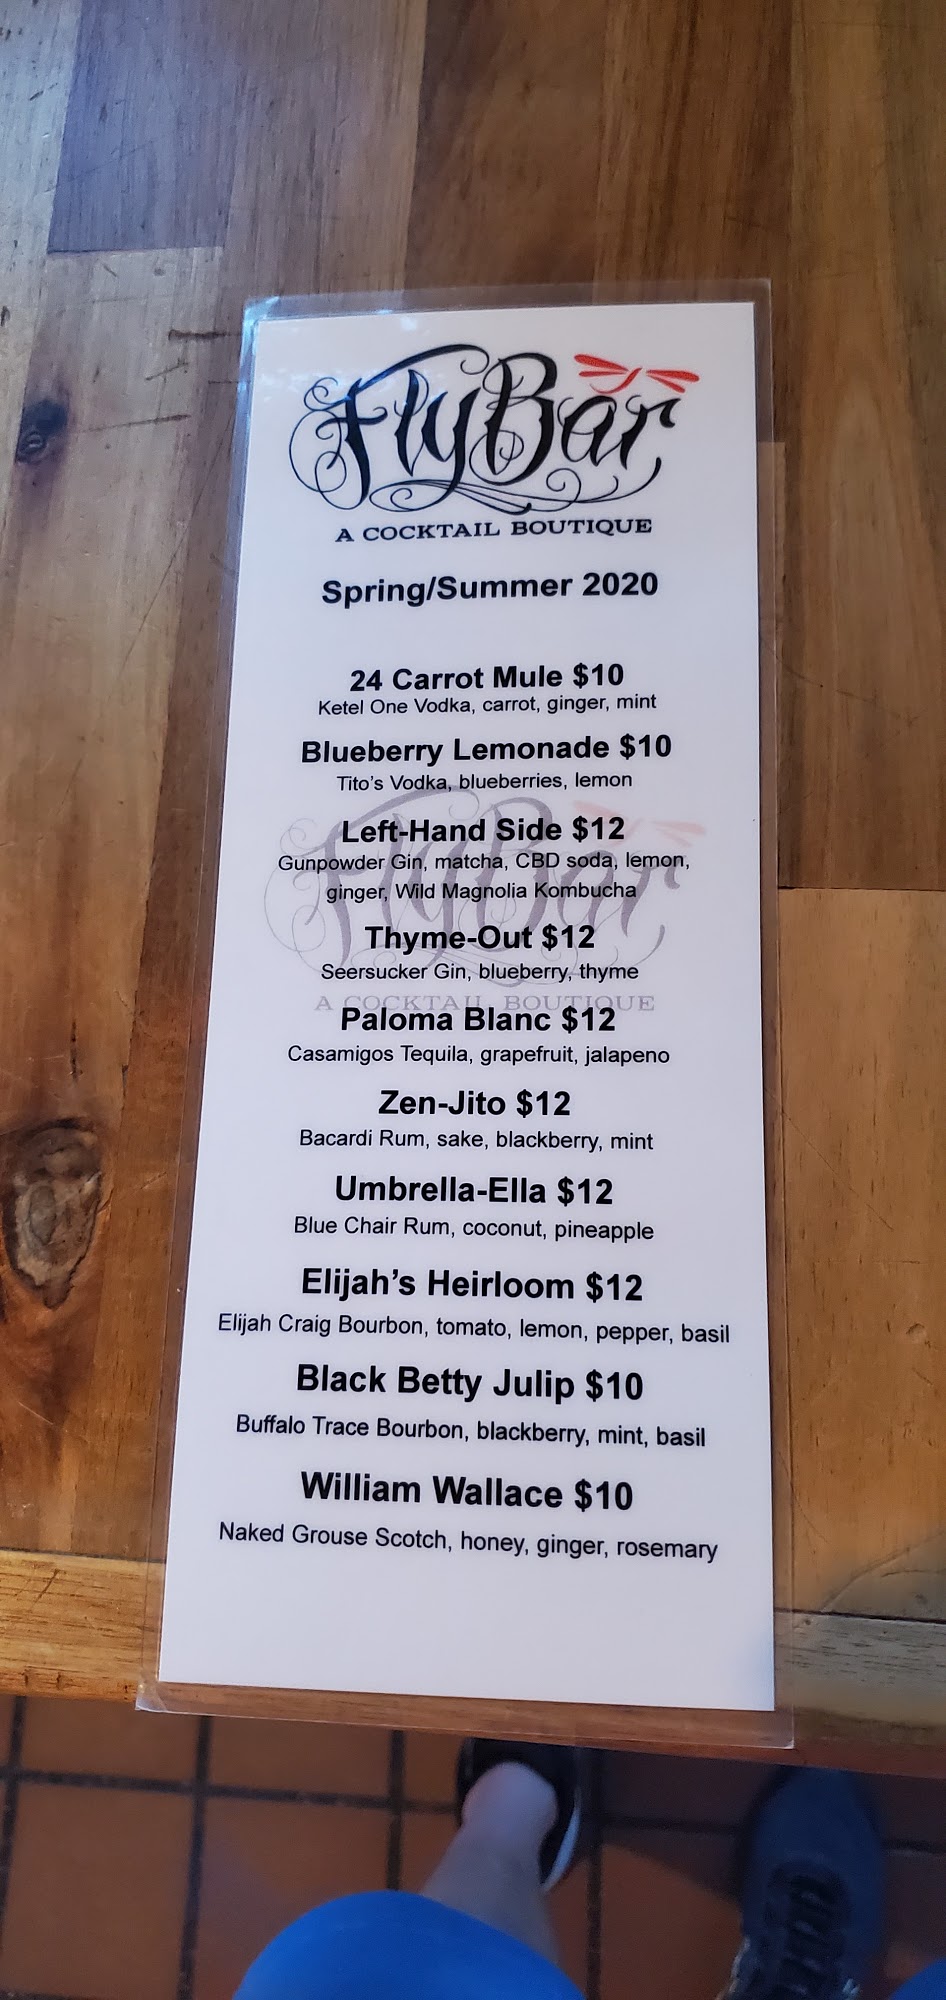 FlyBar
A COCKTAIL BOUTIQUE
Spring/Summer 2020
24 Carrot Mule $10
Ketel One Vodka, carrot, ginger, mint
Blueberry Lemonade $10
Tito's Vodka, blueberries, lemon
Left-Hand Side $12
Gunpowder Gin, matcha, CBD soda, lemon,
ginger, Wild Magnolia Kombucha
FlyBar
Thyme-Out $12
Seersucker Gin, blueberry, thyme
A COCKTAIL BOUTIQUE
Paloma Blanc $12
Casamigos Tequila, grapefruit, jalapeno
Zen-Jito $12
Bacardi Rum, sake, blackberry, mint
Umbrella-Ella $12
Blue Chair Rum, coconut, pineapple
Elijah's Heirloom $12
Elijah Craig Bourbon, tomato, lemon, pepper, basil
Black Betty Julip $10
Buffalo Trace Bourbon, blackberry, mint, basil
William Wallace $10
Naked Grouse Scotch, honey, ginger, rosemary